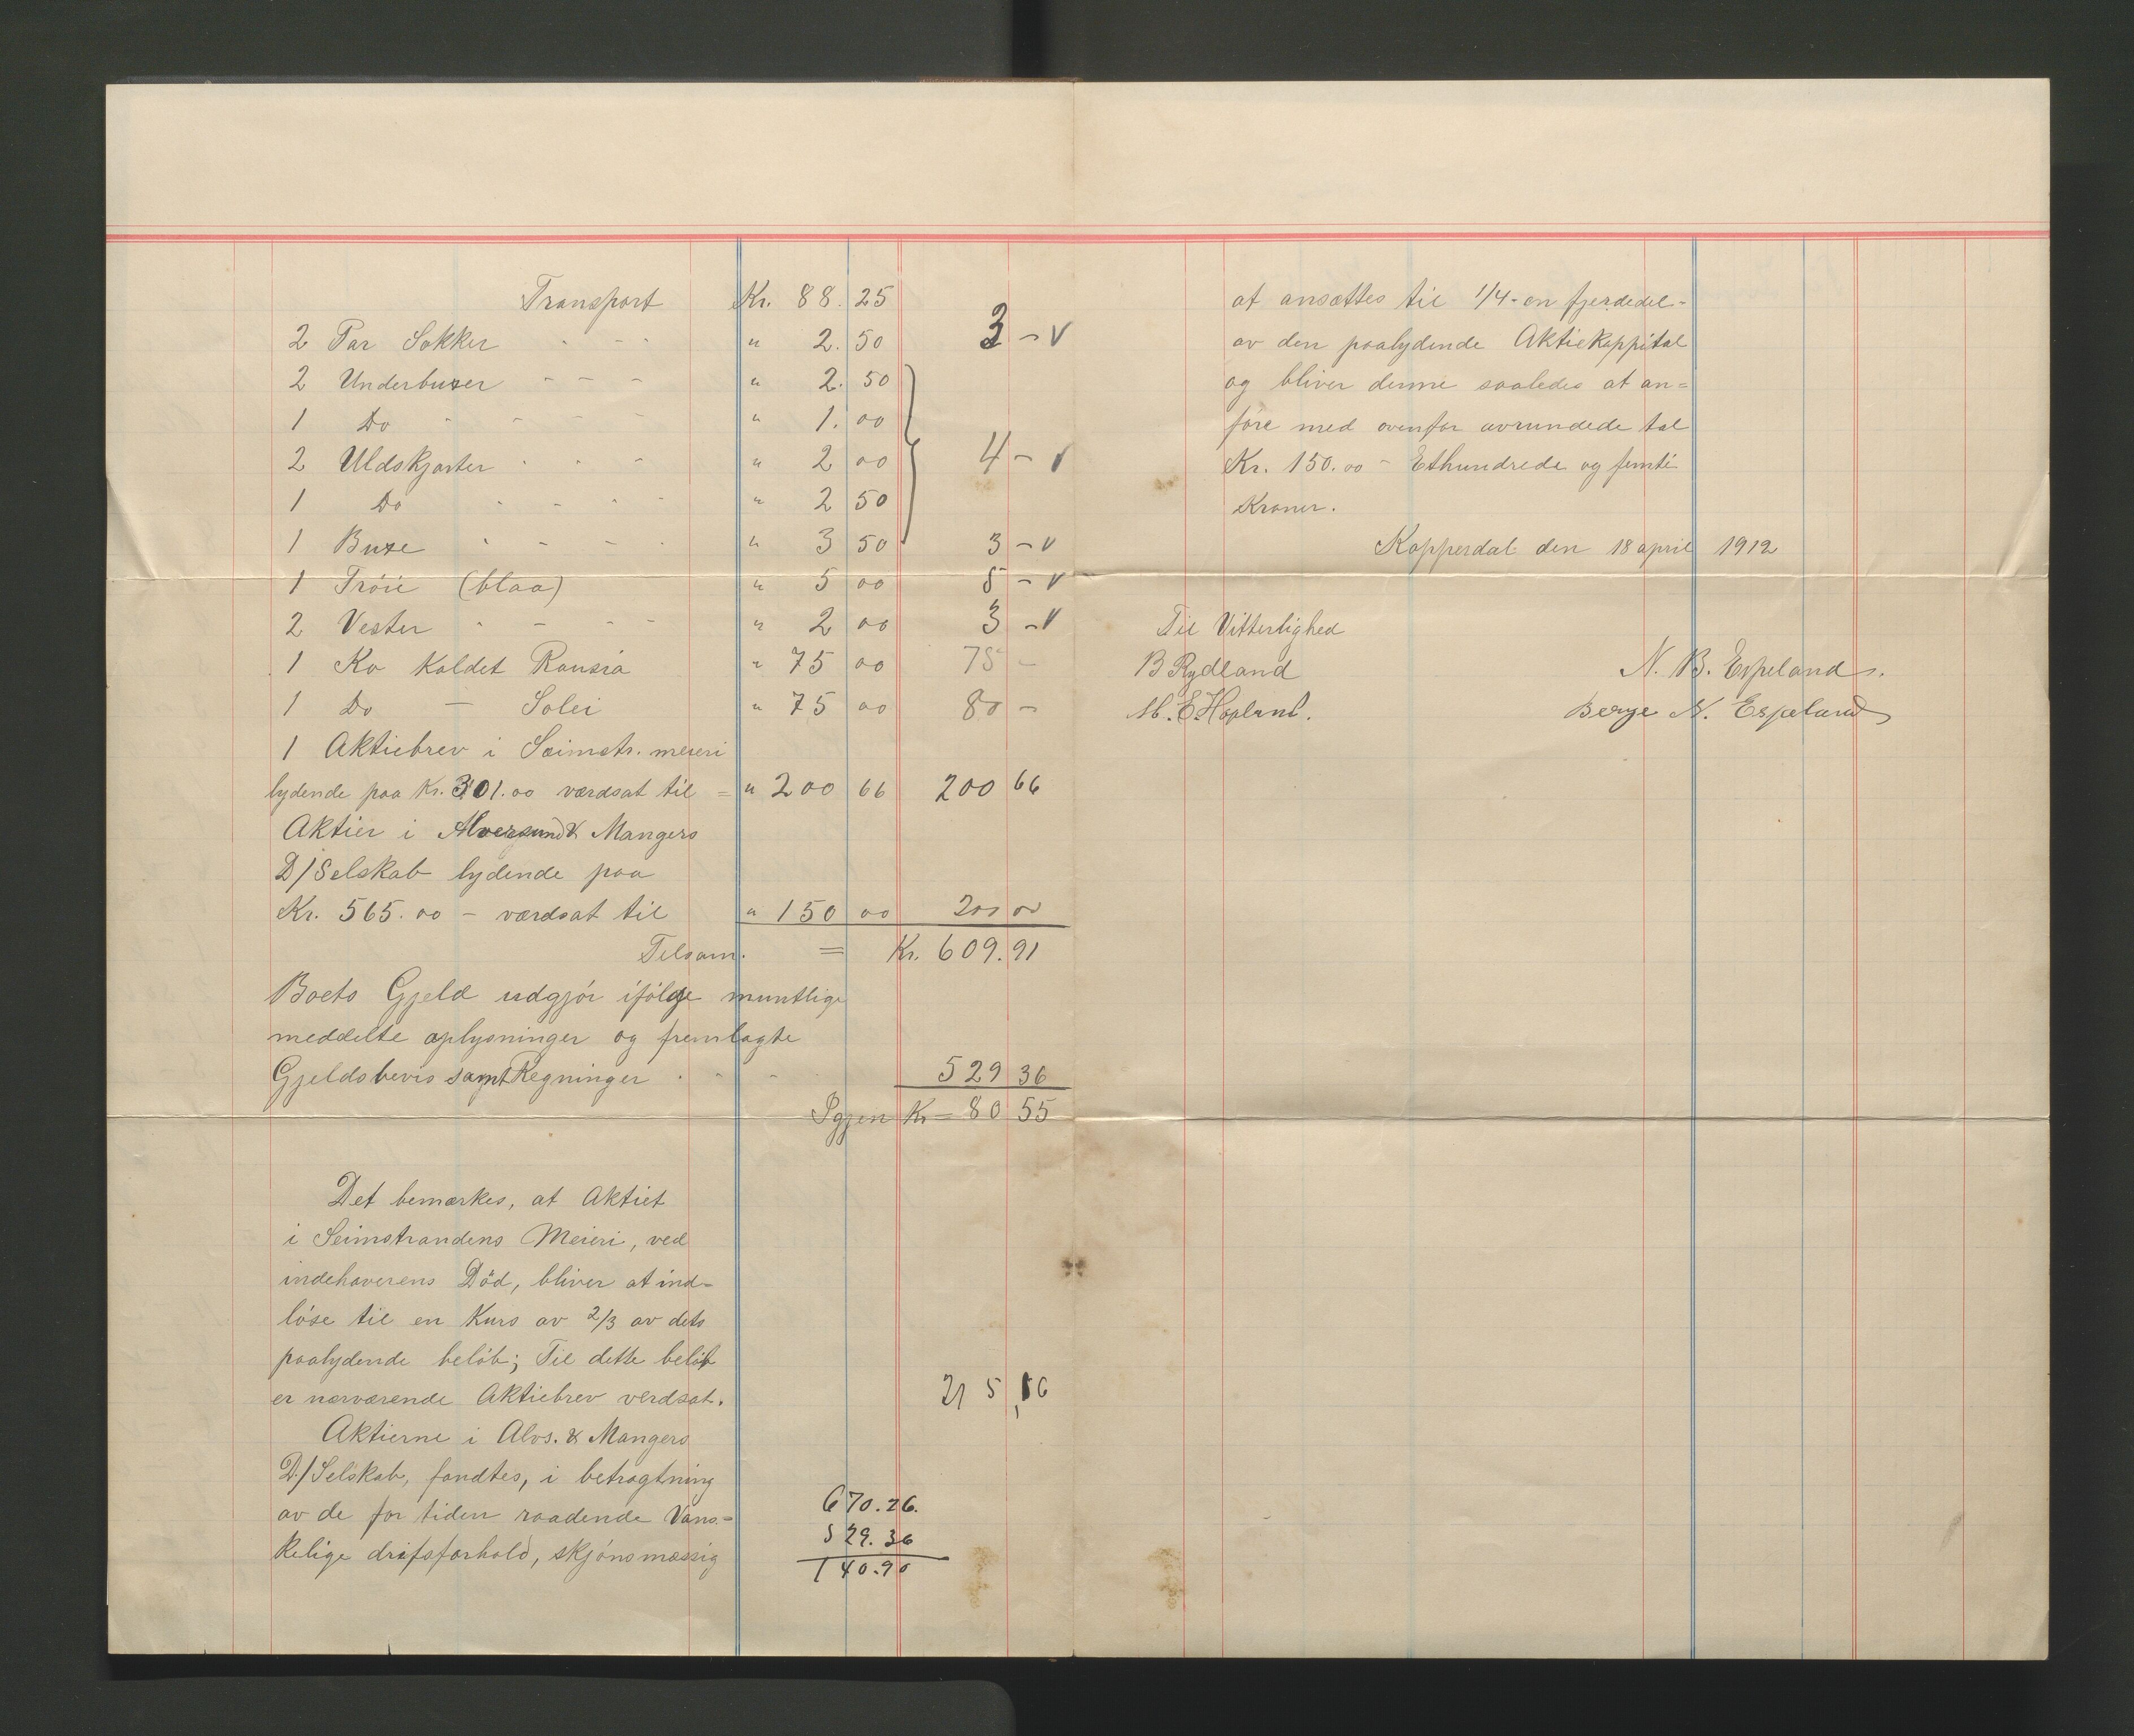 Transport Kr. 88. 25
2 Par Sokker - - - " 2. 50 3 - v
2 Underbuxer - - - " 2. 50
1 Do - - - - " 1. 00
2 Uldskjorter - - - " 2 00 4 - v
1 Do - - - - " 2 50
1 Buxe - - - - " 3 50 3 - v
1 Tröie (blaa) " 5 00 5 - v
2 Vester - - - - " 2 00 3 - v
1 Ko Kaldet Ransia " 75 00 75 -
1 Do — Solei " 75 00 80 -
1 Aktiebrev i Seimstr. meieri
lydende paa Kr. 301.00 værdsat til = " 200 66 200 66
Aktier i Alversund & Mangers
D/Selskab lydende paa
Kr. 565.00 - værdsat til " 150 00 200 00
Tilsam. = Kr. 609.91
Boets Gjeld udgjör ifölge muntlige
meddelte oplysninger og fremlagte
Gjeldsbevis samt Regninger - - - 529 36
Igjen Kr = 80 55
Det bemærkes, at Aktiet
i Seimstrandens Meieri, ved
indehaverens Död, bliver at ind-
löse til en Kurs av 2/3 av dets
paalydende belöb; Til dette belöb
er nærværende Aktiebrev verdsat.
21 5,16
Aktierne i Alvs. & Mangers
D./Selskab, fandtes, i betragtning
av de for tiden raadende Vans-
kelige drifsforhold, skjönsmæssig
670.26.
529.36
140.90
at ansættes til 1/4 - en fjerdedel -
av den paalydende Aktiekappital
og bliver denne saaledes at an=
före med ovenfor avrundede tal
Kr. 150.00 - Ethundrede og femti
Kroner.
Kopperdal den 18 april 1912
Til Vitterlighed
B Rydland N. B. Espeland.
M. E. Hopland. Berge N. Espeland